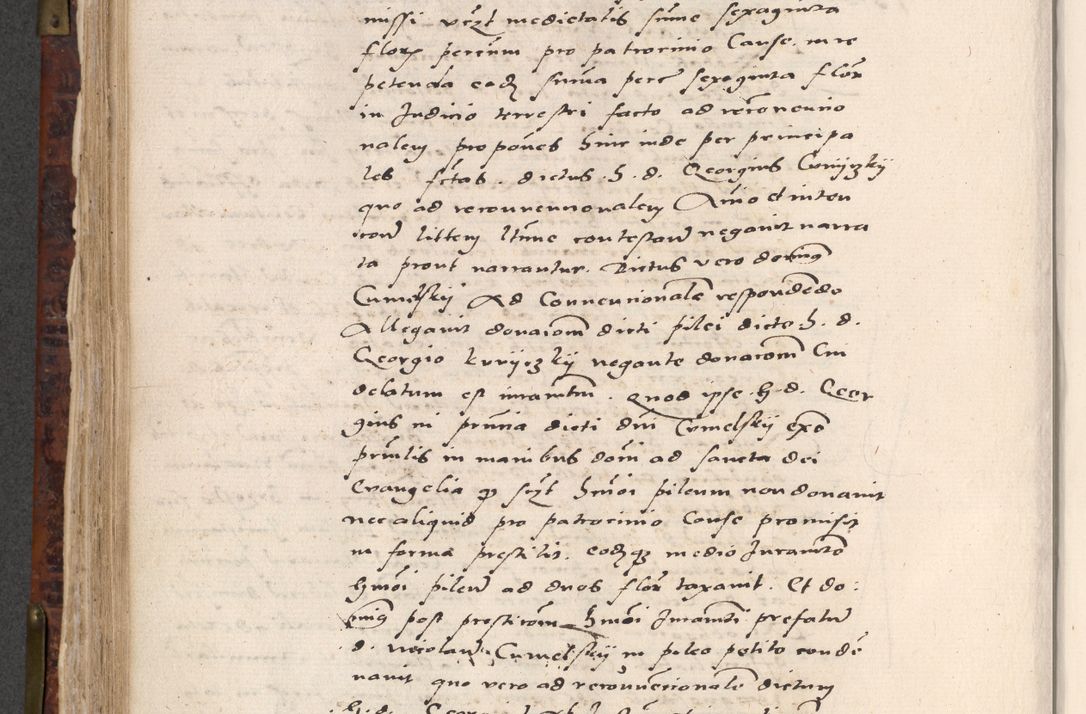 missi vczt medietatis sume sexaginta
flor percum pro patrocinio Cause in re
petenda eodz suma perc sexaginta flor
in Judicio terrestri facto ad reconuencio
nalem propones hinc inde per principa
les sctas . dictus . h . d .  Georgius
quo ad reconuencionalem Acino et inten
litem contestand negauit narra
ta prout narrantur . Dictus vero dominus
Cumelskij Ad Conuencionale respondedo
Allegauit donaciom dicti pilei dicto . h . d .
Georgio negante donaciom Cui
delatum est iuramtm . Quod ipse . h . d . Geor
gius in pruna dicti dni Cumelskij
in manibus domi ad sancta dei
Euangelia q sczt hmoi pileum non donauit
nec aliquid pro patrocinio Cause promisit
in forma prestitit . eodzq medio Juramto
hmoi pileu ad duos flor taxauit . Et do
minus post presticiom hmoi Juramti prefatu
. d . Nicolau Cumelskij in pileo petito conde
nauit quo vero ad reconuecionale dictum
h . d .